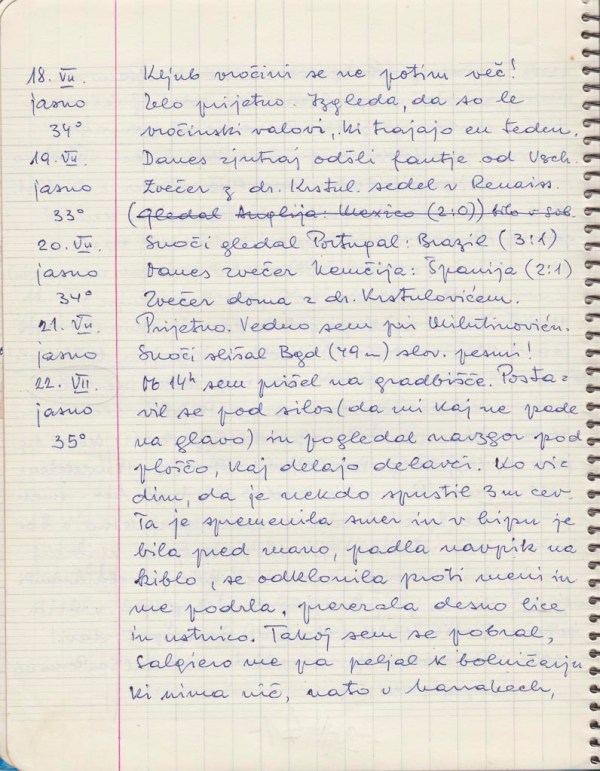 18. VII. Kljub vročini se ne potim več!
jasno Zelo prijetno. Izgleda, da so le
34° vročinski valovi, ki trajajo en teden.
19. VII. Danes zjutraj odšli fantje od Vsch.
jasno Zvečer z dr. Krstul. sedel v Renaiss.
33° (gledal Anglija: Mexico (2:0)) bilo v sob.
20. VII. Snoči gledal Portugal: Brazil (3:1)
jasno Danes zvečer Nemčija: Španija (2:1)
34° Zvečer doma z dr. Krstulovićem.
21. VII. Prijetno. Vedno sem pri Milutinoviću.
jasno Snoči slišal Bgd (49 m) slov. pesmi!
22. VII. Ob 14h sem prišel na gradbišče. Posta=
jasno vil se pod silos (da mi kaj ne pade
35° na glavo) in pogledal navzgor pod
ploščo, kaj delajo delavci. Ko vi=
dim, da je nekdo spustil 3m cev.
Ta je spremenila smer in v hipu je
bila pred mano, padla navpik na
kiblo, se odklonila proti meni in
me podrla, prerezala desno lice
in ustnico. Takoj sem se pobral,
Salgiero me pa peljal k bolničarju
ki nima nič, nato v barakah,